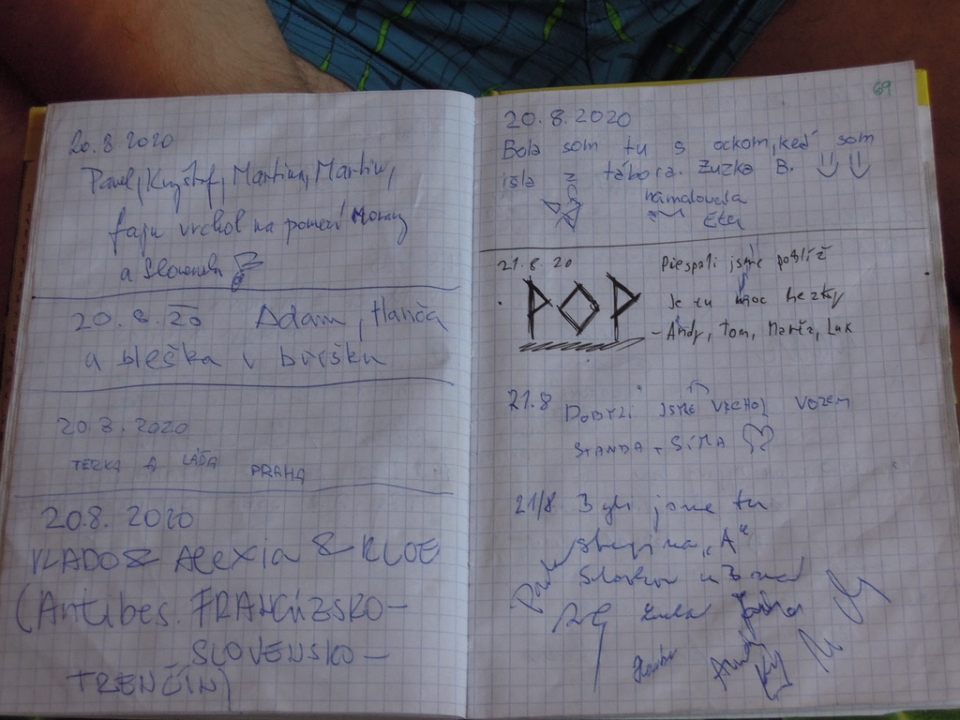 20.8 2020
Pavel, Krysztof, Martina, Martin,
fajn vrchol na pomezí Moravy
a Slovenska
20.8.20 Adam, Hanča
a bleška v bříšku
20.8.2020
TERKA A LÁĎA PRAHA
20.8. 2020
VLADO & Alexia & KLOE
(Antibes. FRANCÚZSKO-
SLOVENSKO-
TRENČÍN)
69
20.8.2020
Bola som tu s ockom, keď som
išla z tábora. Zuzka B.
namalovala
21.8.20
POP
Přespali jsme poblíž
Je tu moc hezky
- Andy, Tom, Luk
21.8 DOBYLI JSME VRCHOL VOZEM
STANDA + SÍMA
21/8 Byli jsme tu
skupina "A"